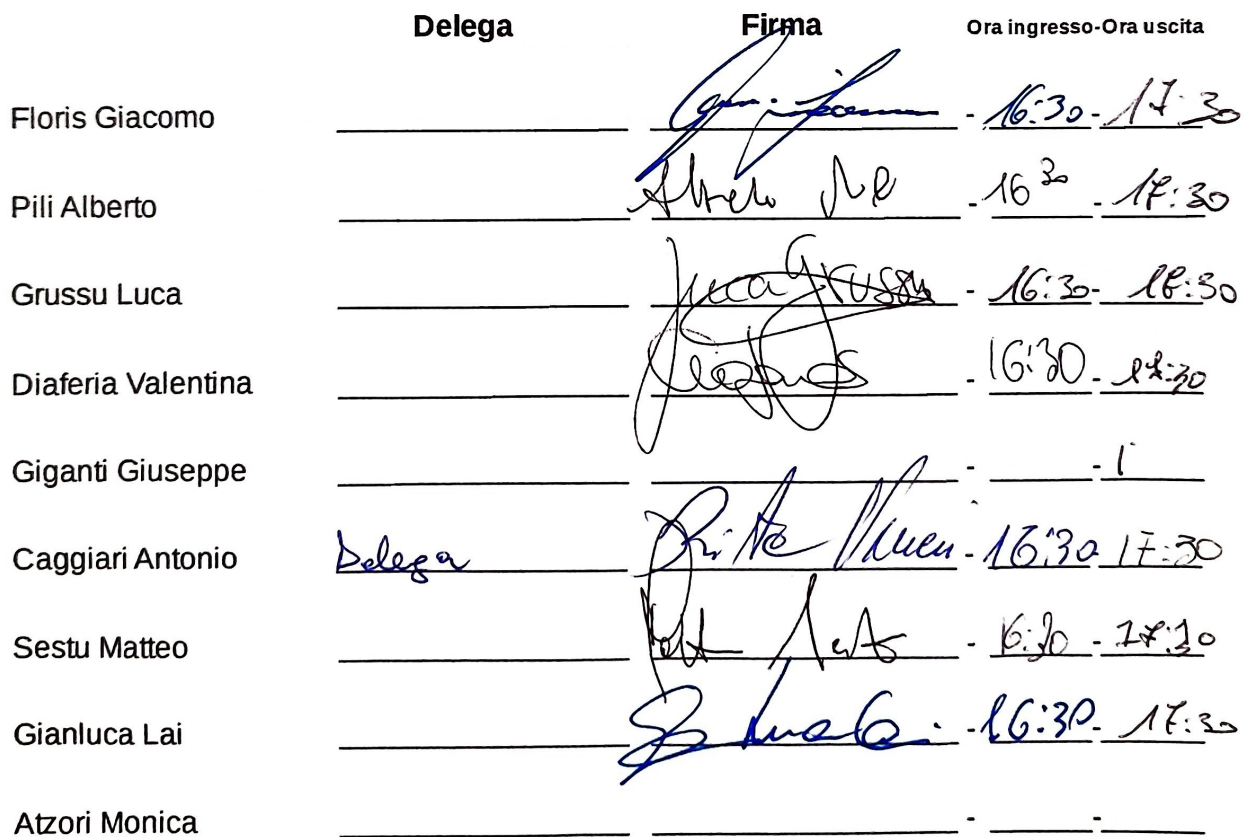 Delega Firma Ora ingresso-Ora uscita
Floris Giacomo - 16:30 - 17:30
Pili Alberto Alberto Pili - 16 30 - 17:30
Grussu Luca Luca Grussu - 16:30 - 17:30
Diaferia Valentina - 16:30 - 17:30
Giganti Giuseppe - -
Caggiari Antonio Delega - 16:30 17:30
Sestu Matteo - 16:30 - 17:30
Gianluca Lai Gianluca Lai - 16:30 - 17:30
Atzori Monica - -